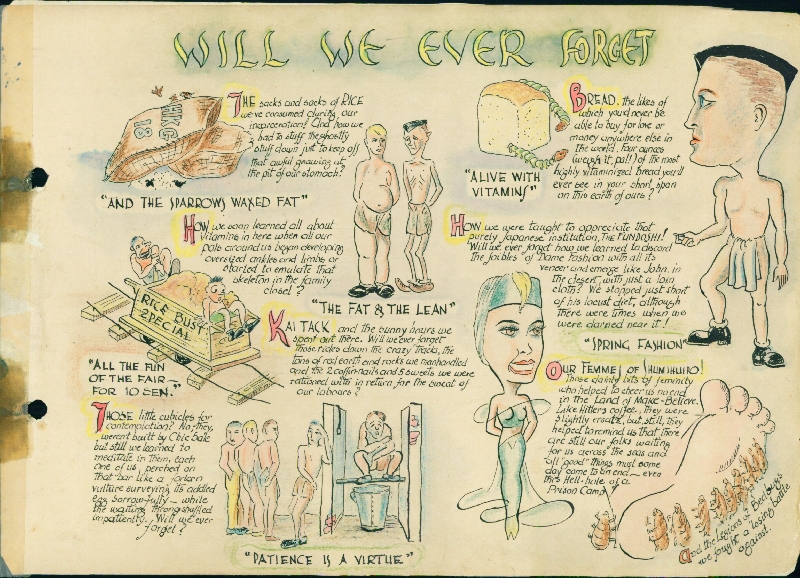 WILL WE EVER FORGET
HK&G
81
THE sacks and sacks of RICE
we've consumed during our
incarceration! And how we
had to stuff the ghastly
stuff down just to keep off
that awful gnawing at
the pit of our stomach?
"AND THE SPARROWS WAXED FAT"
HOW we soon learned all about
vitamins in here when all our
pals around us began developing
oversized ankles and limbs or
started to emulate that
skeleton in the family
closet?
"THE FAT & THE LEAN"
BREAD, the likes of
which you'd never be
able to buy for love or
money anywhere else in
the world. Four ounces
(weigh it, pal!) of the most
highly vitaminized bread you'll
ever see in your short span
on this earth of ours!
"ALIVE WITH
VITAMINS"
HOW we were taught to appreciate that
purely Japanese institution, THE FUNDOSHI!
Will we ever forget how we learned to discard
the foibles of Dame Fashion with all its
veneer and emerge like John, in
the desert, with just a loin
cloth? We stopped just short
of his locust diet, although
there were times when we
were darned near it!
"SPRING FASHION"
RICE BUST
SPECIAL
"ALL THE FUN
OF THE FAIR—
FOR 10 SEN."
KAI TACK and the bunny hours we
spent out there. Will we ever forget
those rides down the crazy tracks, the
tons of red earth and rocks we manhandled
and the 2 coffin-nails and 5 sweets we were
rationed with in return for the sweat of
our labours?
THOSE little cubicles for
contemplation? No, they
weren't built by Chic Sale
but still we learned to
meditate in them, each
one of us, perched on
that bar like a forlorn
vulture surveying its addled
egg sorrowfully – while
the waiting throng shuffled
impatiently. Will we ever
forget?
"PATIENCE IS A VIRTUE"
OUR FEMMES of SHUMSHUIPO!
Those dainty bits of feminity
who helped to cheer us no end
in the Land of Make-Believe.
Like Hitler's coffee, they were
slightly ersatz, but, still, they
helped to remind us that there
are still our folks waiting
for us across the seas and
"all good" things must some
day come to an end – even
this Hell-hole of a
Prison Camp!
And the legions of Bed bugs
we fought a losing battle
against!